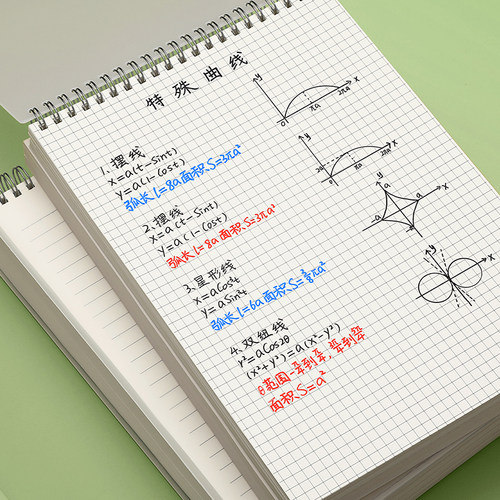 特殊曲线
1.摆线
x=a(t-Sint)
y=a(1-Cost)
弧长l=8a面积S=3πa²
2.摆线
x=a(t-Sint)
y=a(1-Cost)
弧长l=8a面积S=3πa²
3.星形线
x=aCos³t
y=aSin³t
弧长l=6a面积S=⅜πa²
4.双纽线
y²=aCos2θ
(x²+y²)=a(x²-y²)
面积S=a²
y
x
0
πa
2πa
y
2a
x
0
πa
2πa
y
a
x
-a
a
-a
y
x